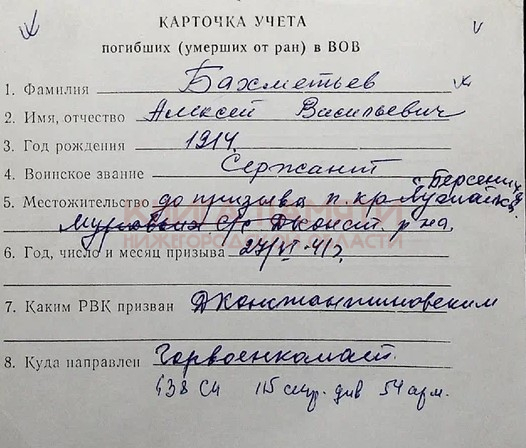 КАРТОЧКА УЧЕТА
погибших (умерших от ран) в ВОВ
1. Фамилия Бахметьев
2. Имя, отчество Алексей Васильевич
3. Год рождения 1914
4. Воинское звание Сержант
5. Местожительство до призыва п. кр
с/с Дконст. р-на
КНИГА ПАМЯТИ
НИЖЕГОРОДСКОЙ ОБЛАСТИ
6. Год, число и месяц призыва 27/VI-41г.
7. Каким РВК призван Дконстантиновским
8. Куда направлен Горвоенкомат.
438 СП 115 стр. див 54 арм.